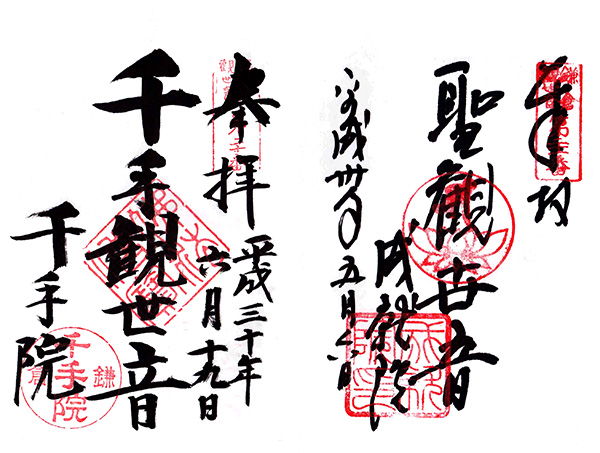 奉拝
聖観世音
成就院
平成卅年五月六日
奉拝
平成三十年
六月十九日
千手観世音
千手院
鎌倉
千手院